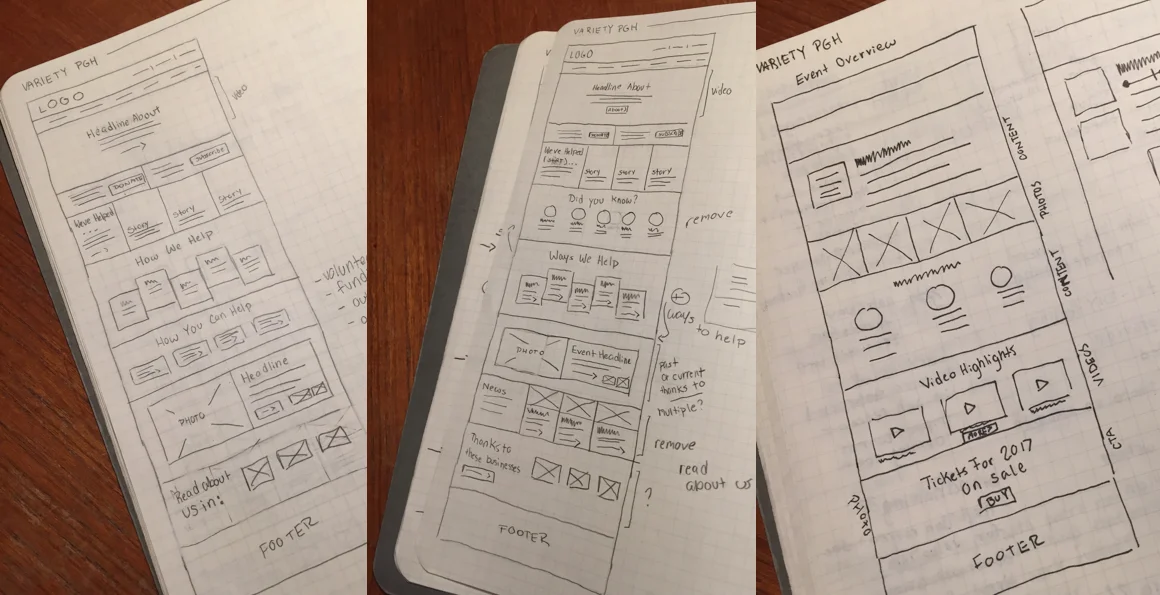 VARIETY PGH
LOGO
video
Headline About
DONATE
Subscribe
We've Helped
...
Story
Story
Story
How We Help
How You Can Help
Headline
PHOTO
Read about
us in:
FOOTER
- volunte
- fund
- ou
- o
VARIETY PGH
LOGO
Headline About
video
We've Helped
...
story
story
story
Did you know?
remove
Ways We Help
+
ways
to help
PHOTO
Event Headline
past
or current
thanks to
multiple?
News
remove
Thanks to
these businesses
read
about us
?
FOOTER
VARIETY PGH
Event Overview
CONTENT
PHOTOS
CONTENT
Video Highlights
VIDEOS
MORE?
CTA
Tickets for 2017
on sale
BUY
PHOTO
FOOTER